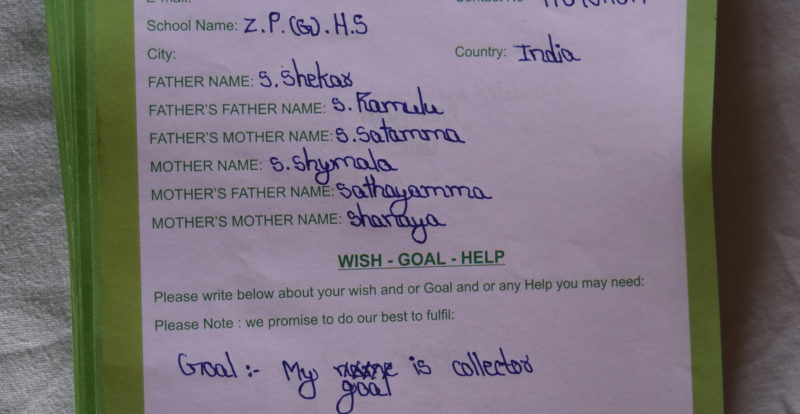 School Name: Z.P.(G).H.S
City: Country: India
FATHER NAME: S. Shekar
FATHER'S FATHER NAME: S. Ramulu
FATHER'S MOTHER NAME: S. Satamma
MOTHER NAME: S. Shymala
MOTHER'S FATHER NAME: Sathayamma
MOTHER'S MOTHER NAME: Sharaya
WISH - GOAL - HELP
Please write below about your wish and or Goal and or any Help you may need:
Please Note : we promise to do our best to fulfil:
Goal :- My goal is collector